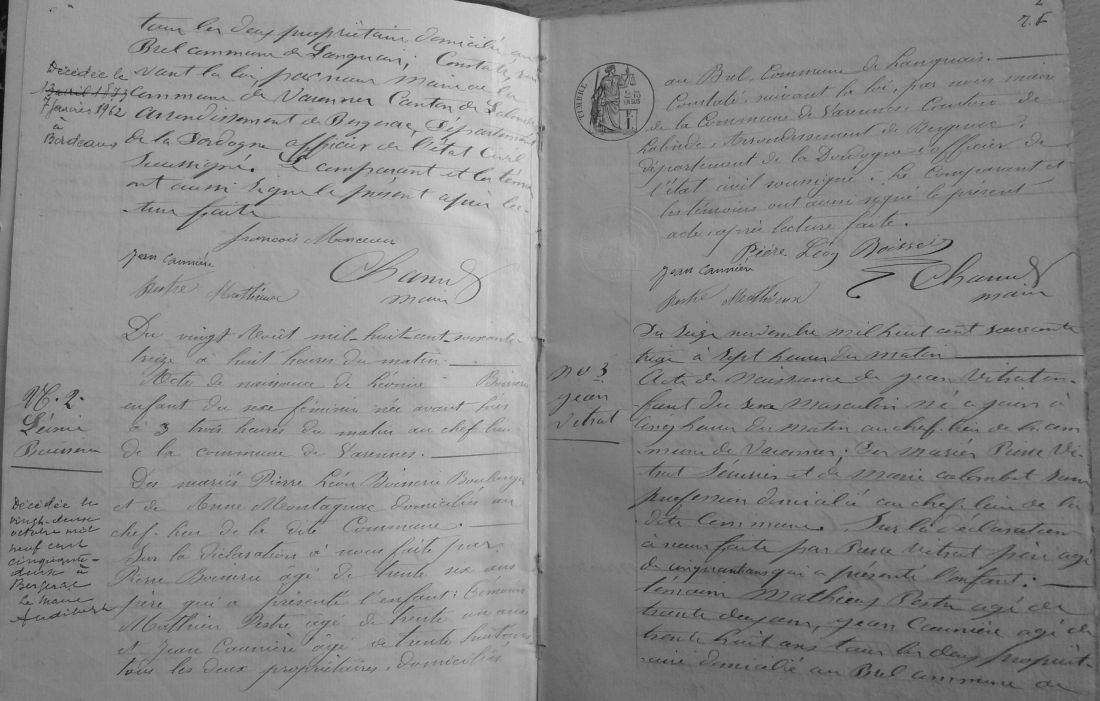 tous les deux propriétaires domiciliés au
Brel commune de Languais, Constaté, sui
vant la loi, par nous maire de la
commune de Varennes Canton de Lalinde
arrondissement de Bergerac, Département
de la Dordogne officier de l'état civil
soussigné. Le comparant et les témoins
ont aussi signé le présent après lec-
ture faite
Décédée le
7 Janvier 1962
à
Bordeaux
François
Jean Caunière
Chanut
maire
Pestre Mathieux
Du vingt Août mil huit cent soixante
treize à huit heures du matin.
Acte de naissance de Léonie Boisserie
enfant du sexe féminin née avant hier
à 3 trois heures du matin au chef lieu
de la commune de Varennes.
N. 2.
Boisserie
Des mariés Pierre Léon Boisserie Boulanger
et de Anne Montagnac domiciliés au
chef lieu de la dite Commune.
Sur la déclaration à nous faite par
Pierre Boiserie âgé de trente six ans
père qui a présenté l'enfant: témoins
Mathieu Pestre âgé de trente un ans
et Jean Caunière âgé de trente huit ans
tous les deux propriétaires, domiciliés
Décédée le
vingt-deux
octobre mil
neuf cent
cinquante-
deux à
Bergerac
Le Maire
TIMBRE
au Brel, Commune de Languais.
Constaté, suivant la loi, par nous maire
de la Commune de Varennes, Canton de
Lalinde, Arrondissement de Bergerac,
Département de la Dordogne officier de
l'état civil soussigné: Le Comparant et
les témoins ont aussi signé le présent
acte, après lecture faite.
Pière Léon Boisseri
Jean Caunière
Chanut
maire
Pestre Mathieux
Du seize novembre mil huit cent soixante
treize à sept heures du matin
no 3
jean
Vitrat
Acte de Naissance de jean Vitrat en-
fant du sexe masculin né à
cinq heures du matin au chef-lieu de la com
mune de Varennes: Des mariés Pierre Vi
trat et de Marie Colombet sans
profession domicilié au chef lieu de la
dite Commune. Sur la déclaration
à nous faite par Pierre Vitrat père agé
de cinquante ans qui a présenté l'enfant:
témoins Mathieux Pestre agé de
trente deux ans, jean Caunière agé de
trente huit ans tous les deux propriét-
aire domicilié au Brel commune de